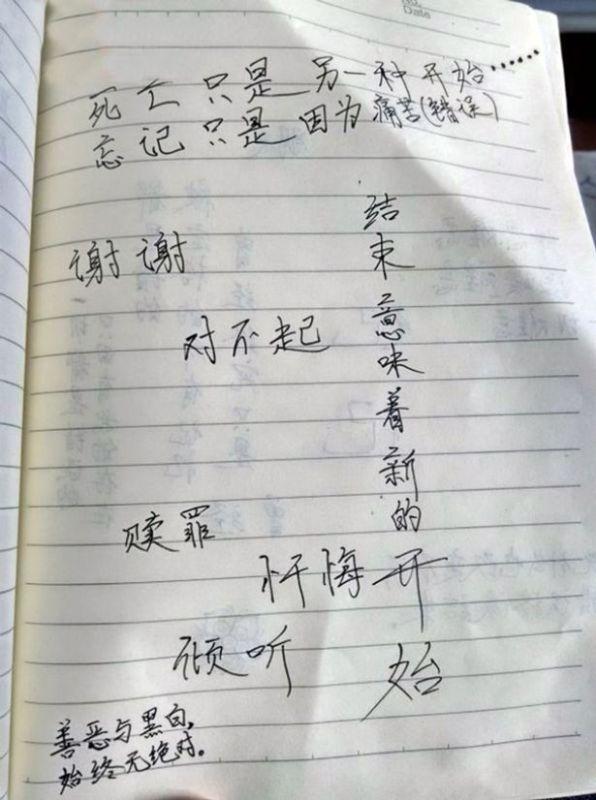 Date
死亡只是另一种开始……
忘记只是因为痛苦(错误)
结束意味着新的开始
谢谢
对不起
赎罪
忏悔
倾听
善恶与黑白,
始终无绝对。